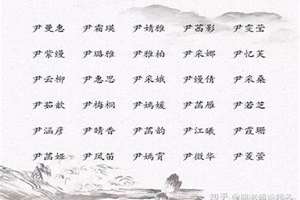 尹曼惠 尹霜瑛 尹婧雅 尹菡影 尹雯莹
尹紫缦 尹璐雅 尹雅柏 尹采娜 尹忆芙
尹云柳 尹惠思 尹采娥 尹嫚倩 尹采桑
尹茹歆 尹梅桐 尹嫣媛 尹菡雁 尹若芝
尹涵彦 尹晴香 尹菡韵 尹江曦 尹霞珊
尹菡娅 尹凤苗 尹嫣霄 尹微华 尹菱萱